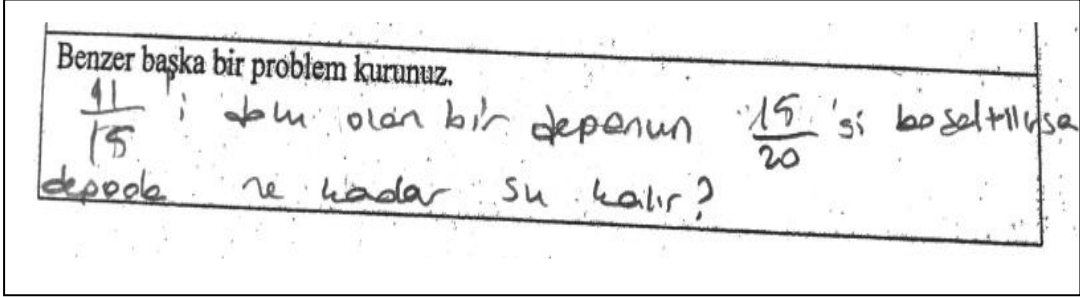 Benzer başka bir problem kurunuz.
11/15 'i dolu olan bir deponun 15/20 'si boşaltılırsa
depoda ne kadar su kalır?